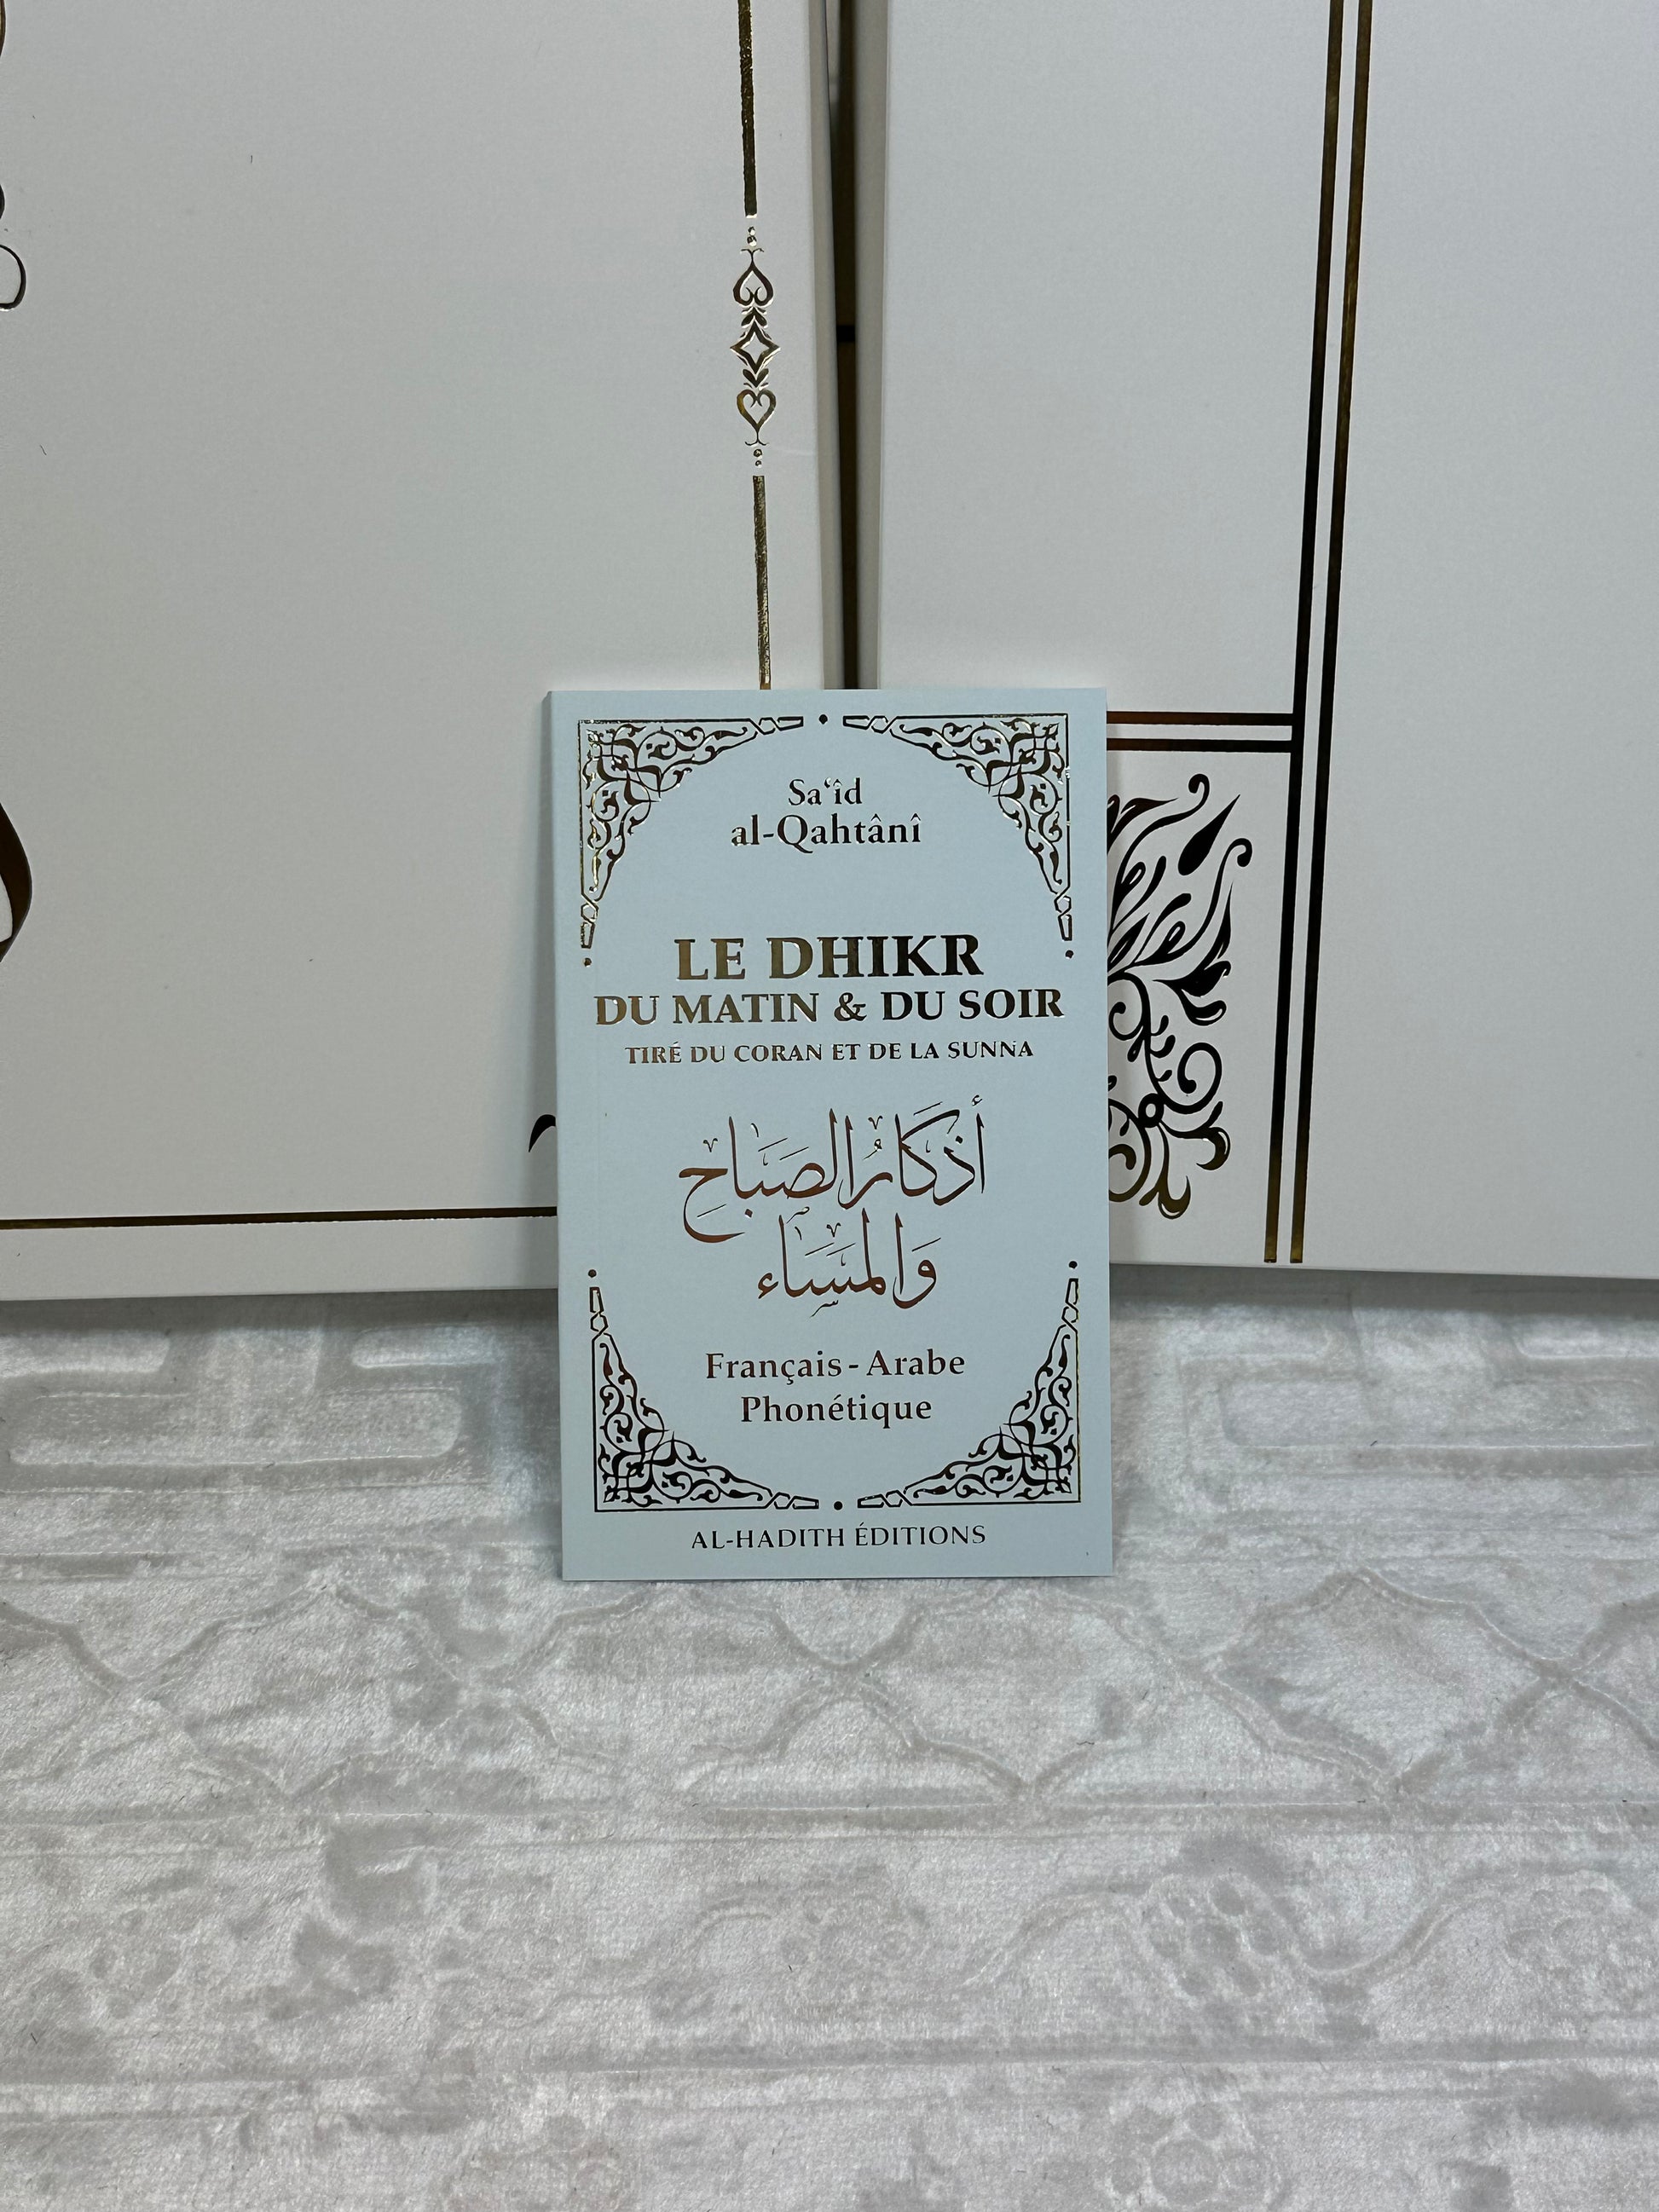 Sa‘îd
al-Qahtânî
LE DHIKR
DU MATIN & DU SOIR
TIRÉ DU CORAN ET DE LA SUNNA
أَذْكَارُ الصَّبَاحِ
وَالْمَسَاءِ
Français - Arabe
Phonétique
AL-HADITH ÉDITIONS